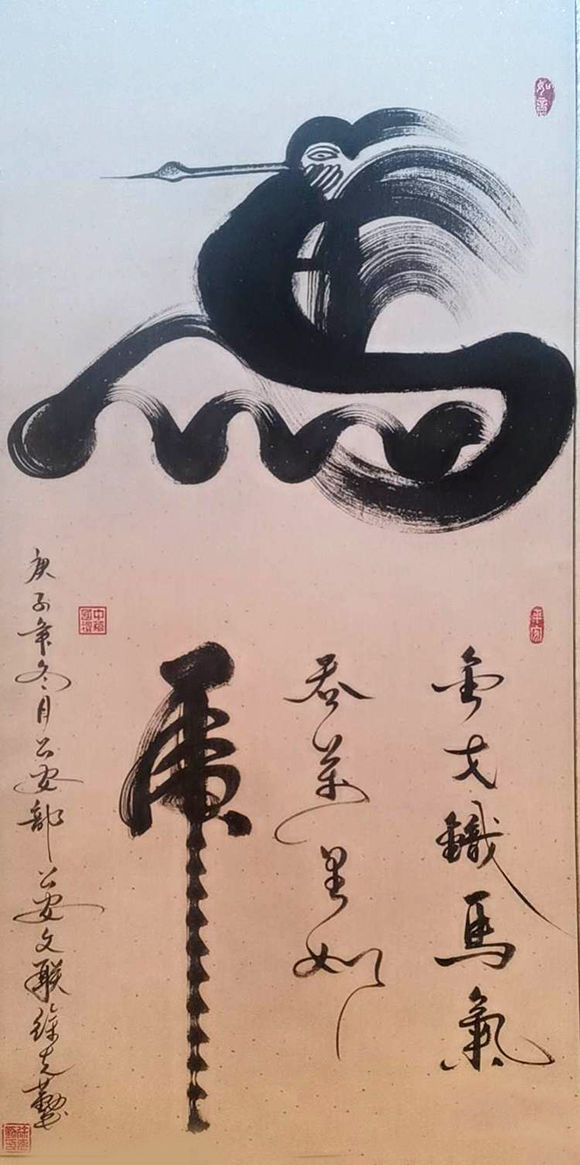 馬
如意
金戈鐵馬氣
吞萬里如
虎
庚子年冬月公安部公安文联徐克勤